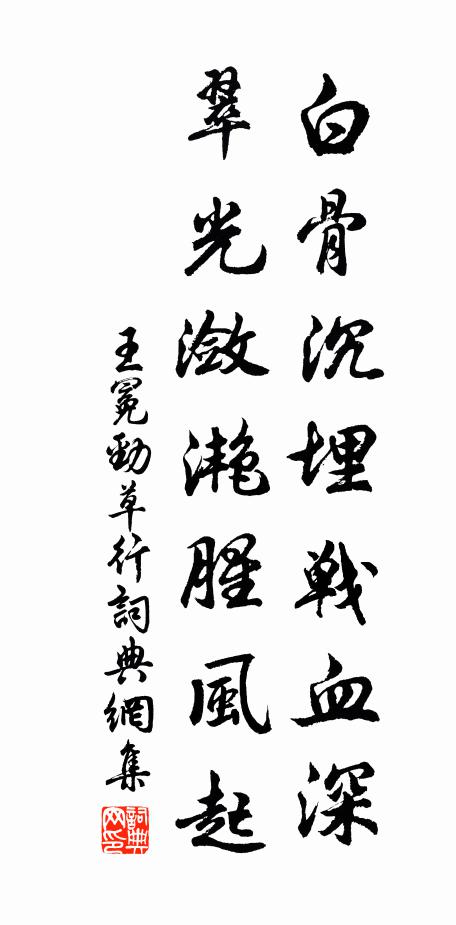 白骨沉埋戦血深
翠光潋滟腥風起
王冕勁草行詞典網集
詞典網印